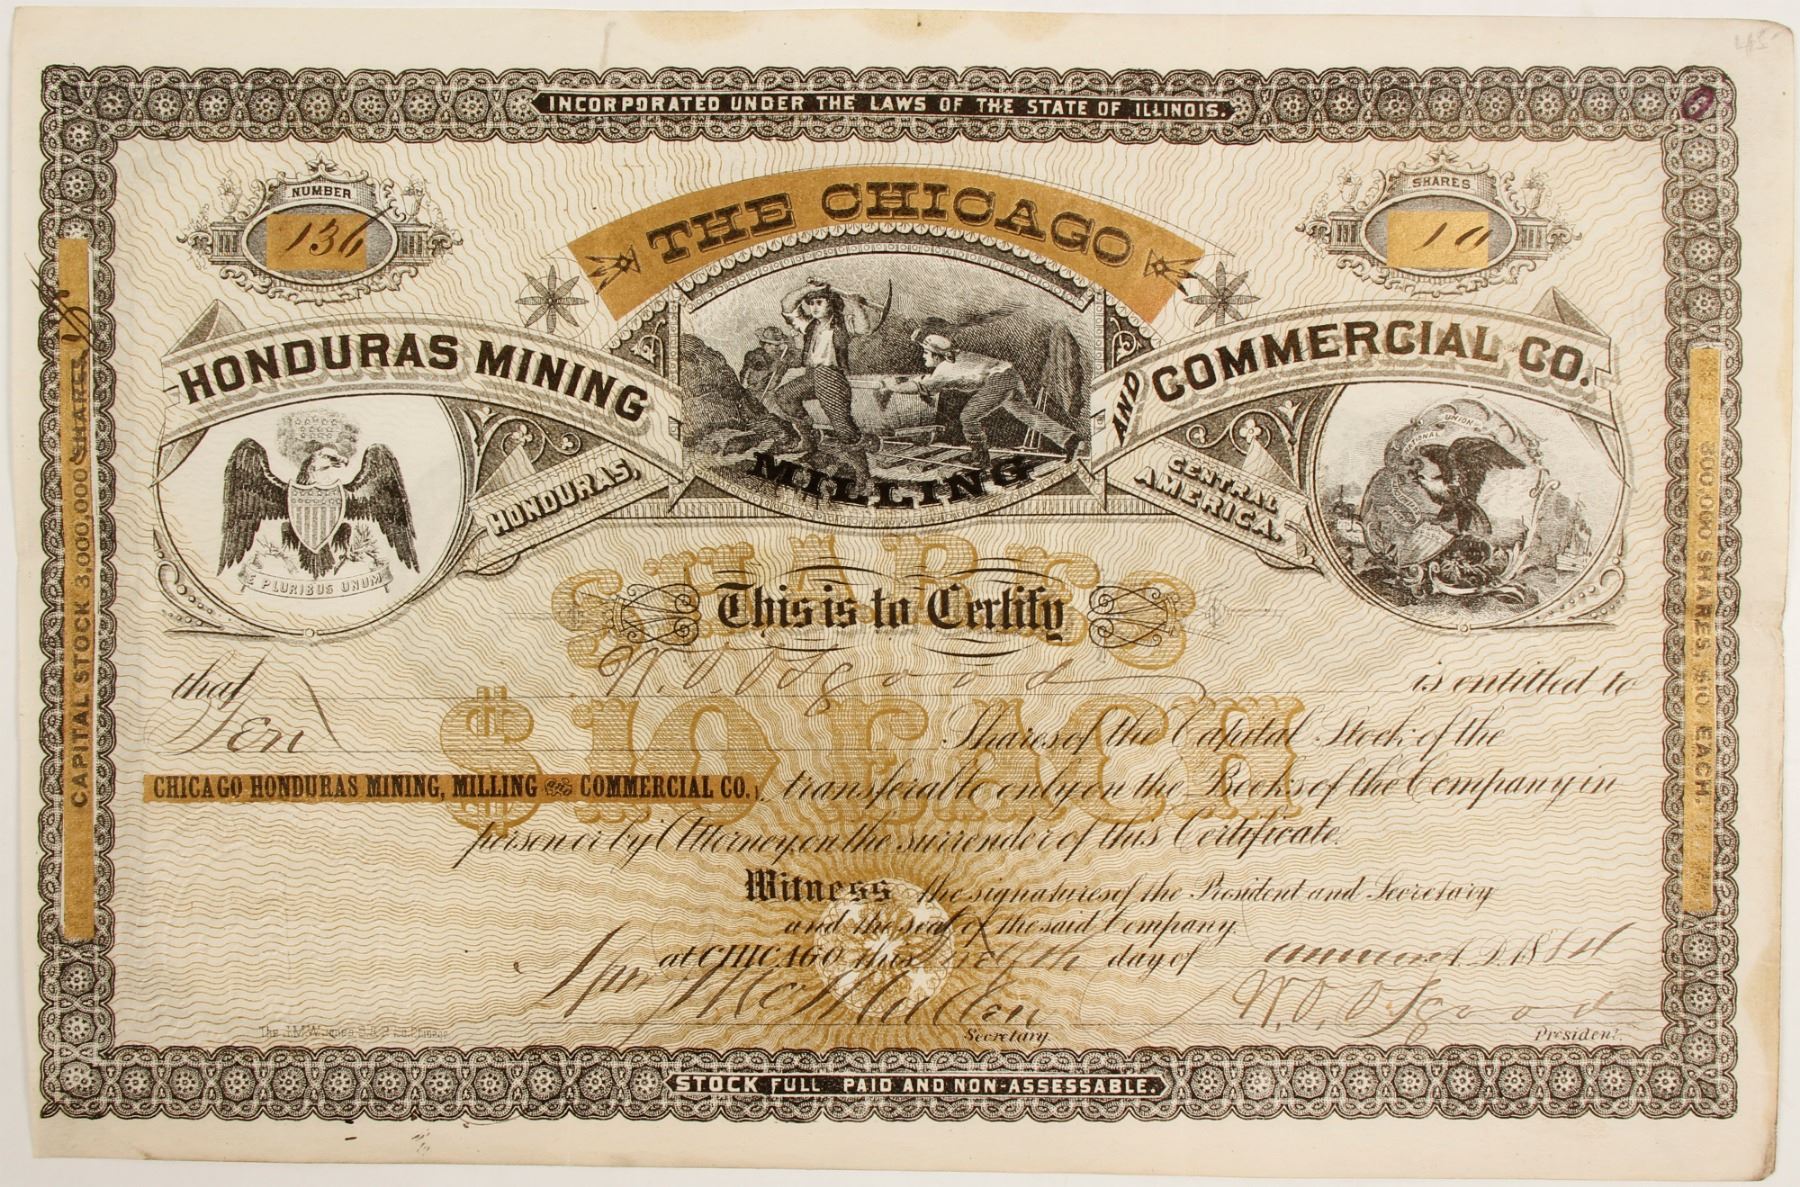 INCORPORATED UNDER THE LAWS OF THE STATE OF ILLINOIS.
NUMBER
136
SHARES
10
THE CHICAGO
HONDURAS MINING
MILLING
AND
COMMERCIAL CO.
HONDURAS,
CENTRAL
AMERICA.
E PLURIBUS UNUM
NATIONAL UNION
CAPITAL STOCK 3,000,000
300,000 SHARES, $10. EACH.
SHARES
$10 EACH
This is to Certify
that W. O. Osgood is entitled to
Ten Shares of the Capital Stock of the
CHICAGO HONDURAS MINING, MILLING AND COMMERCIAL CO., transferable only on the Books of the Company in
person or by Attorney on the surrender of this Certificate.
Witness the signatures of the President and Secretary
and the seal of the said Company.
at CHICAGO this Twelfth day of A.D. 188
McMullen Secretary.
W. O. Osgood President.
STOCK FULL PAID AND NON-ASSESSABLE.